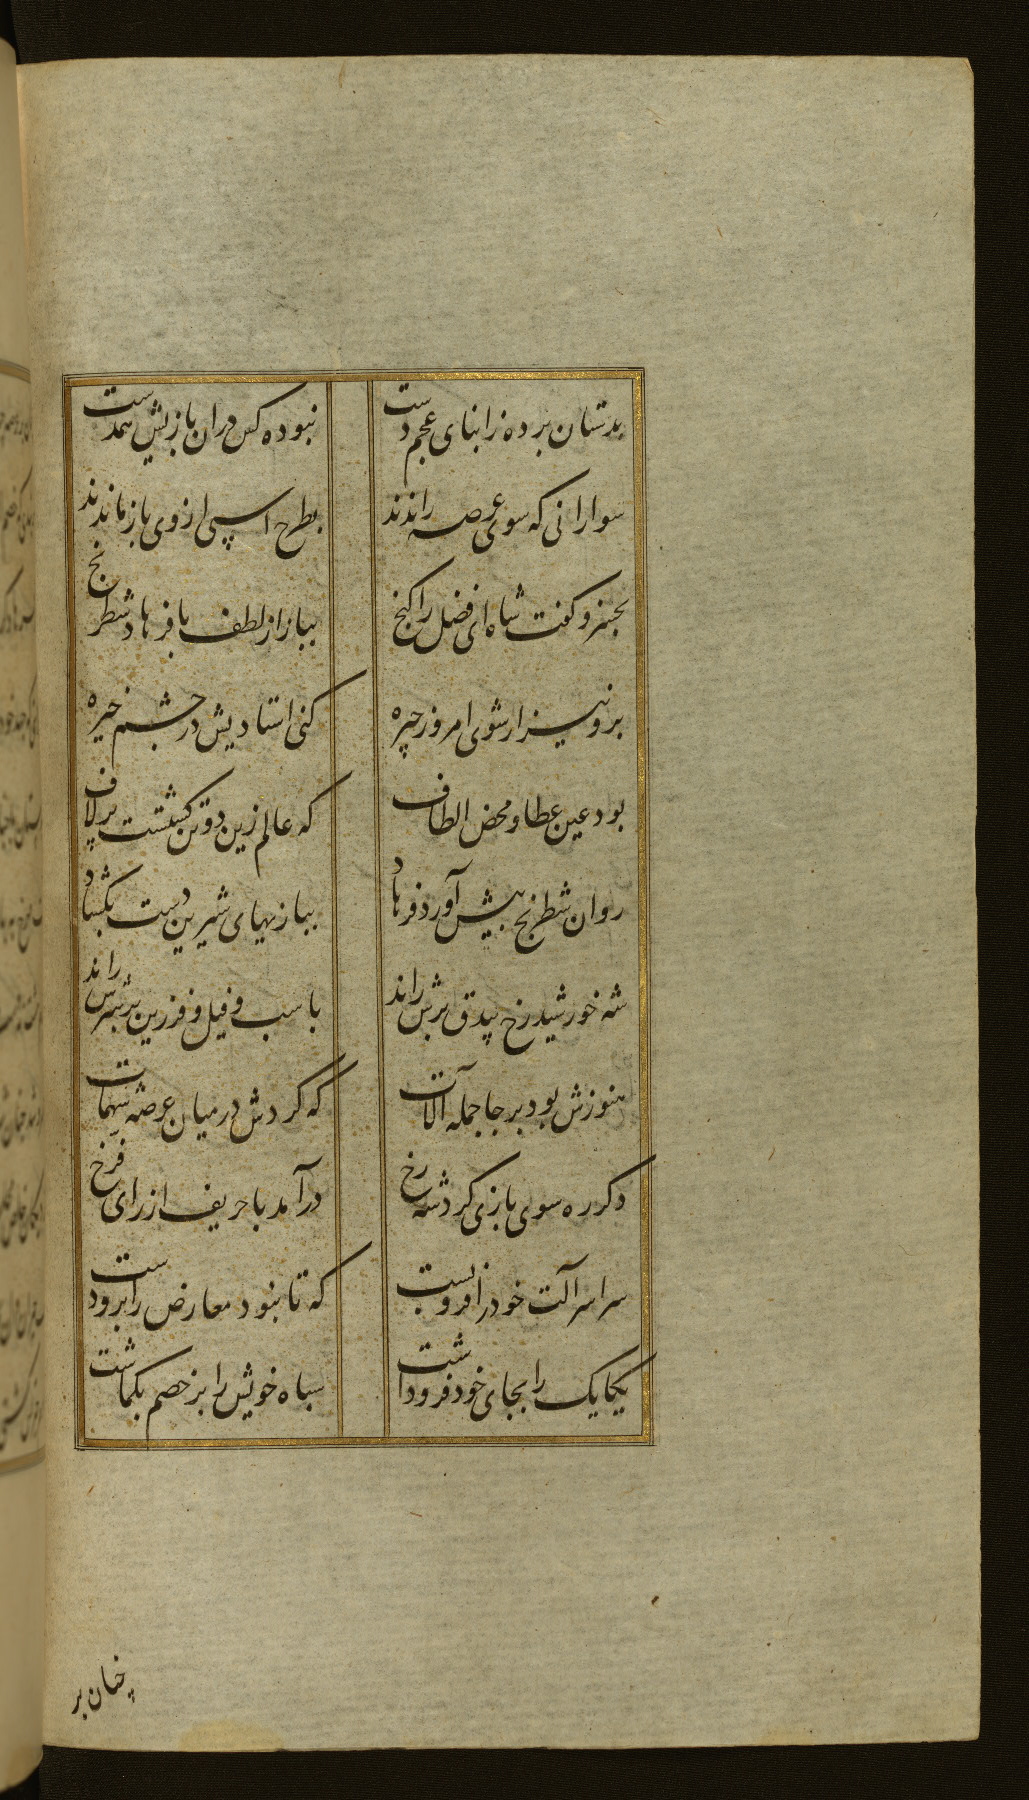 بدستان برده ز ابنای عجم دست نبوده کس دران بازیش همدست
سوارانی که سوی عرصه راندند بطرح اسپی از وی باز ماندند
بخسرو گفت شاه ای فضل را گنج بباز از لطف با فرهاد شطرنج
برو نیز ار شوی امروز چیره کنی استادیش در چشم خیره
بود عین عطا و محض الطاف که عالم زین دو تن گشتست پر لاف
روان شطرنج پیش آورد فرهاد ببازیهای شیرین دست بگشاد
شه خورشید رخ بیدق برش راند باسب و فیل و فرزین بر سرش راند
هنوزش بود بر جا جمله آلات که کردش در میان عرصه شهمات
دکر ره سوی بازی کرد شه رخ درآمد با حریف از رای فرخ
سراسر آلت خود را فرو بست که تا نبود معارض را برو دست
یکایک را بجای خود فرو داشت سپاه خویش را بر خصم بگماشت
چنان بر